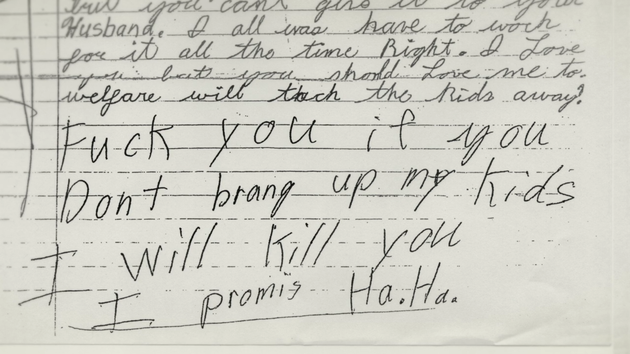 but you can't give it to your
Husband. I all was have to woch
for it all the time Right. I Love
you but you should Love me to.
welfare will toch the kids away?
Fuck you if you
Dont brang up my kids
I will kill you
I promis Ha.Ha.